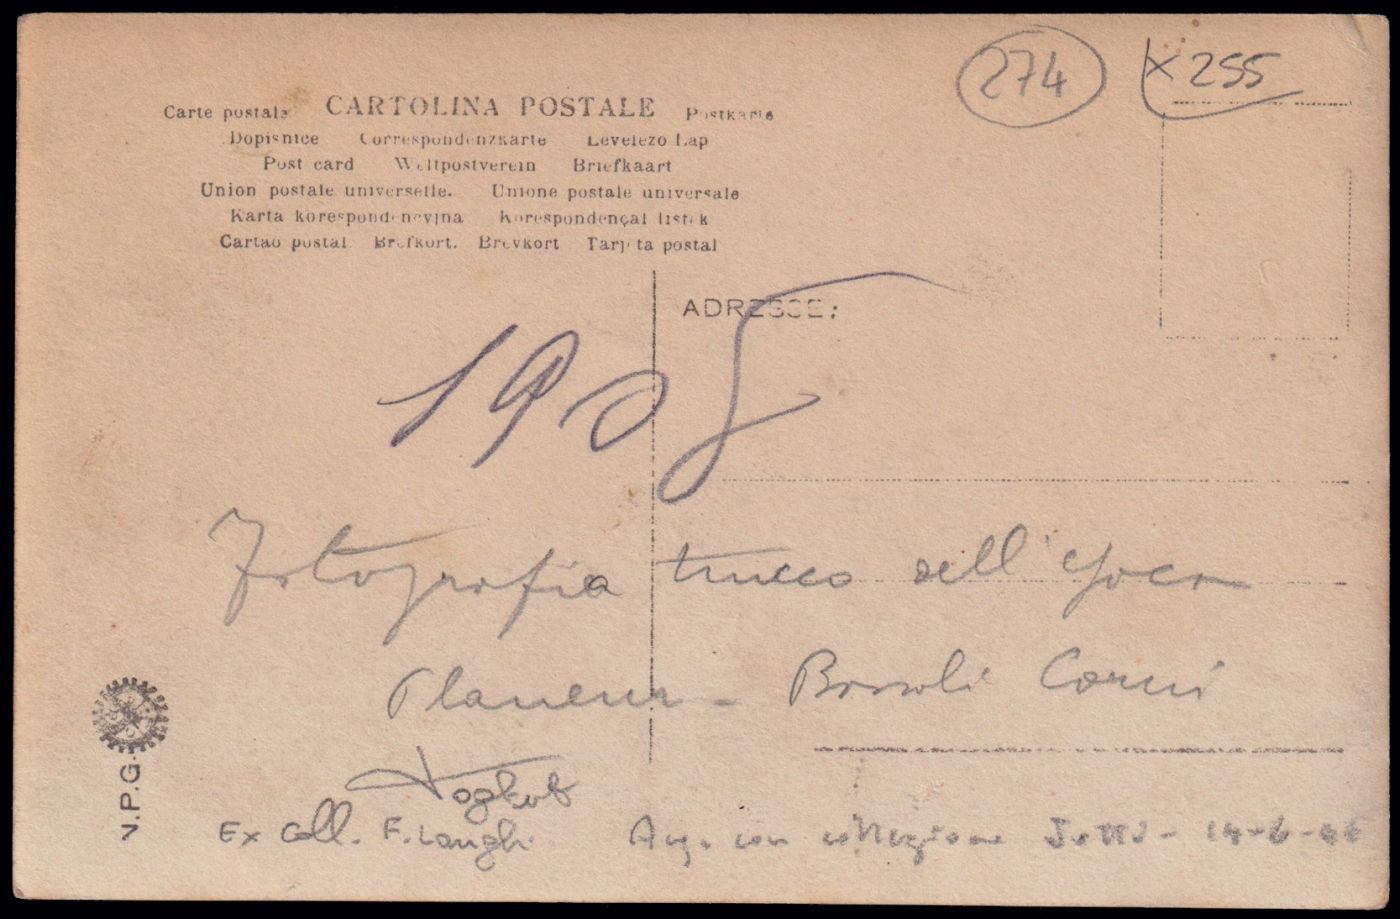 274 x 255
Carte postale CARTOLINA POSTALE Postkarte
Dopisnice Correspondenzkarte Levelezo Lap
Post card Weltpostverein Briefkaart
Union postale universelle. Unione postale universale
Karta korespondencyjna Korespondençal listek
Cartao postal. Brefkort. Brevkort Tarjeta postal
ADRESSE:
1905
Fotografia trucco dell'epoca
Planeur - Bossoli Corni
V.P.G.
Ex Coll. F. Langhi. Acq. con collezione 14-6-